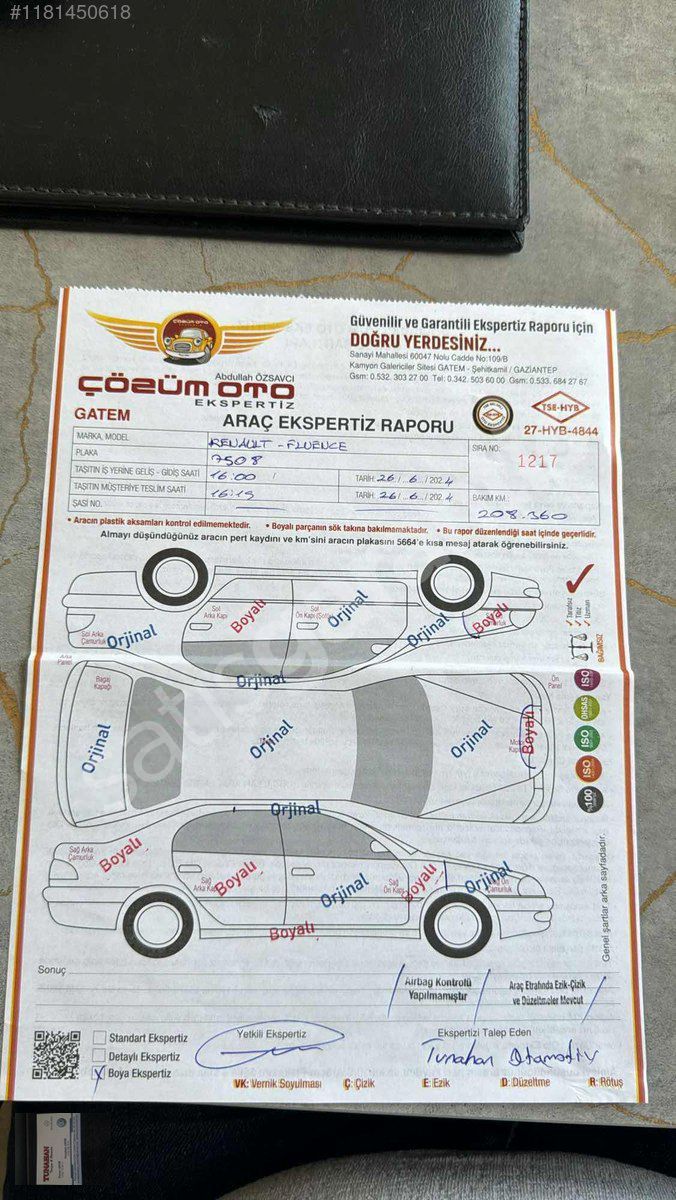 #1181450618
ÇÖZÜM OTO
Abdullah ÖZSAVCI
ÇÖZÜM OTO
EKSPERTİZ
Güvenilir ve Garantili Ekspertiz Raporu için
DOĞRU YERDESİNİZ...
Sanayi Mahallesi 60047 Nolu Cadde No:109/B
Kamyon Galericiler Sitesi GATEM - Şehitkamil / GAZİANTEP
Gsm: 0.532. 303 27 00 Tel: 0.342. 503 60 00 Gsm: 0.533. 684 27 67
GATEM
ARAÇ EKSPERTİZ RAPORU
TSE-HYB
27-HYB-4844
MARKA, MODEL RENAULT - FLUENCE
PLAKA 7508
SIRA NO: 1217
TAŞITIN İŞ YERİNE GELİŞ - GİDİŞ SAATİ 16:00 / TARİH: 26/..6../202.4
TAŞITIN MÜŞTERİYE TESLİM SAATİ 16:15 TARİH: 26/..6../202.4
BAKIM KM.:
ŞASİ NO. 208.360
• Aracın plastik aksamları kontrol edilmemektedir. • Boyalı parçanın sök takına bakılmamaktadır. • Bu rapor düzenlendiği saat içinde geçerlidir.
Almayı düşündüğünüz aracın pert kaydını ve km'sini aracın plakasını 5664'e kısa mesaj atarak öğrenebilirsiniz.
Tarafsız
Titiz
Uzman
BAĞIMSIZ
Sol Arka
Çamurluk
Orjinal
Sol
Arka Kapı
Boyalı
Sol
Ön Kapı
Orjinal
Orjinal
Boyalı
Orjinal
Arka
Panel
Bagaj
Kapağı
Orjinal
Orjinal
Orjinal
Boyalı
Ön
Panel
ISO
OHSAS
ISO
ISO
%100
Orjinal
Sağ Arka
Çamurluk
Boyalı
Sağ
Arka Kapı
Boyalı
Orjinal
Sağ
Ön Kapı
Boyalı
Orjinal
Sağ Ön
Çamurluk
Boyalı
Genel şartlar arka sayfadadır.
Sonuç
Airbag Kontrolü
Yapılmamıştır
Araç Etrafında Ezik-Çizik
ve Düzeltmeler Mevcut
Standart Ekspertiz
Detaylı Ekspertiz
X Boya Ekspertiz
Yetkili Ekspertiz
Ekspertizi Talep Eden
Tunahan Otomotiv
VK: Vernik Soyulması Ç: Çizik E: Ezik D: Düzeltme R: Rötuş
TUNAHAN